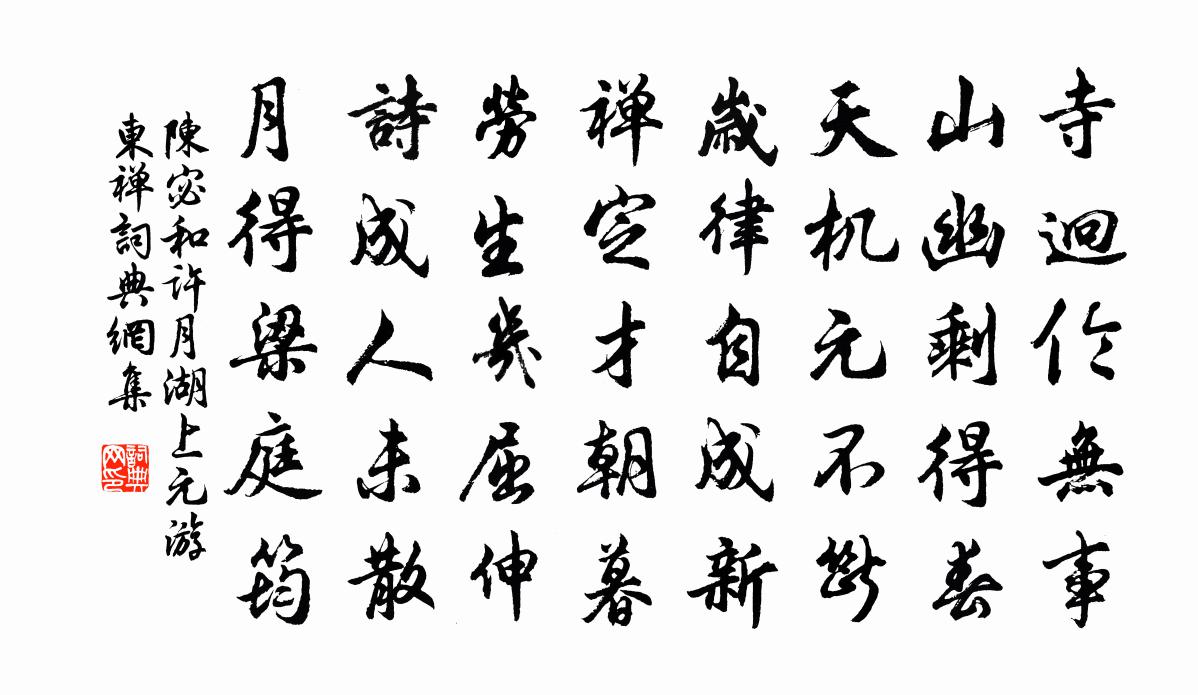 寺迥無事
山幽剩得春
天机元不斷
歲律自成新
禅定才朝暮
勞生幾屈伸
詩成人未散
月得梁庭筠
陳宓和許月湖上元游
東禅詞典網集
詞典
网印